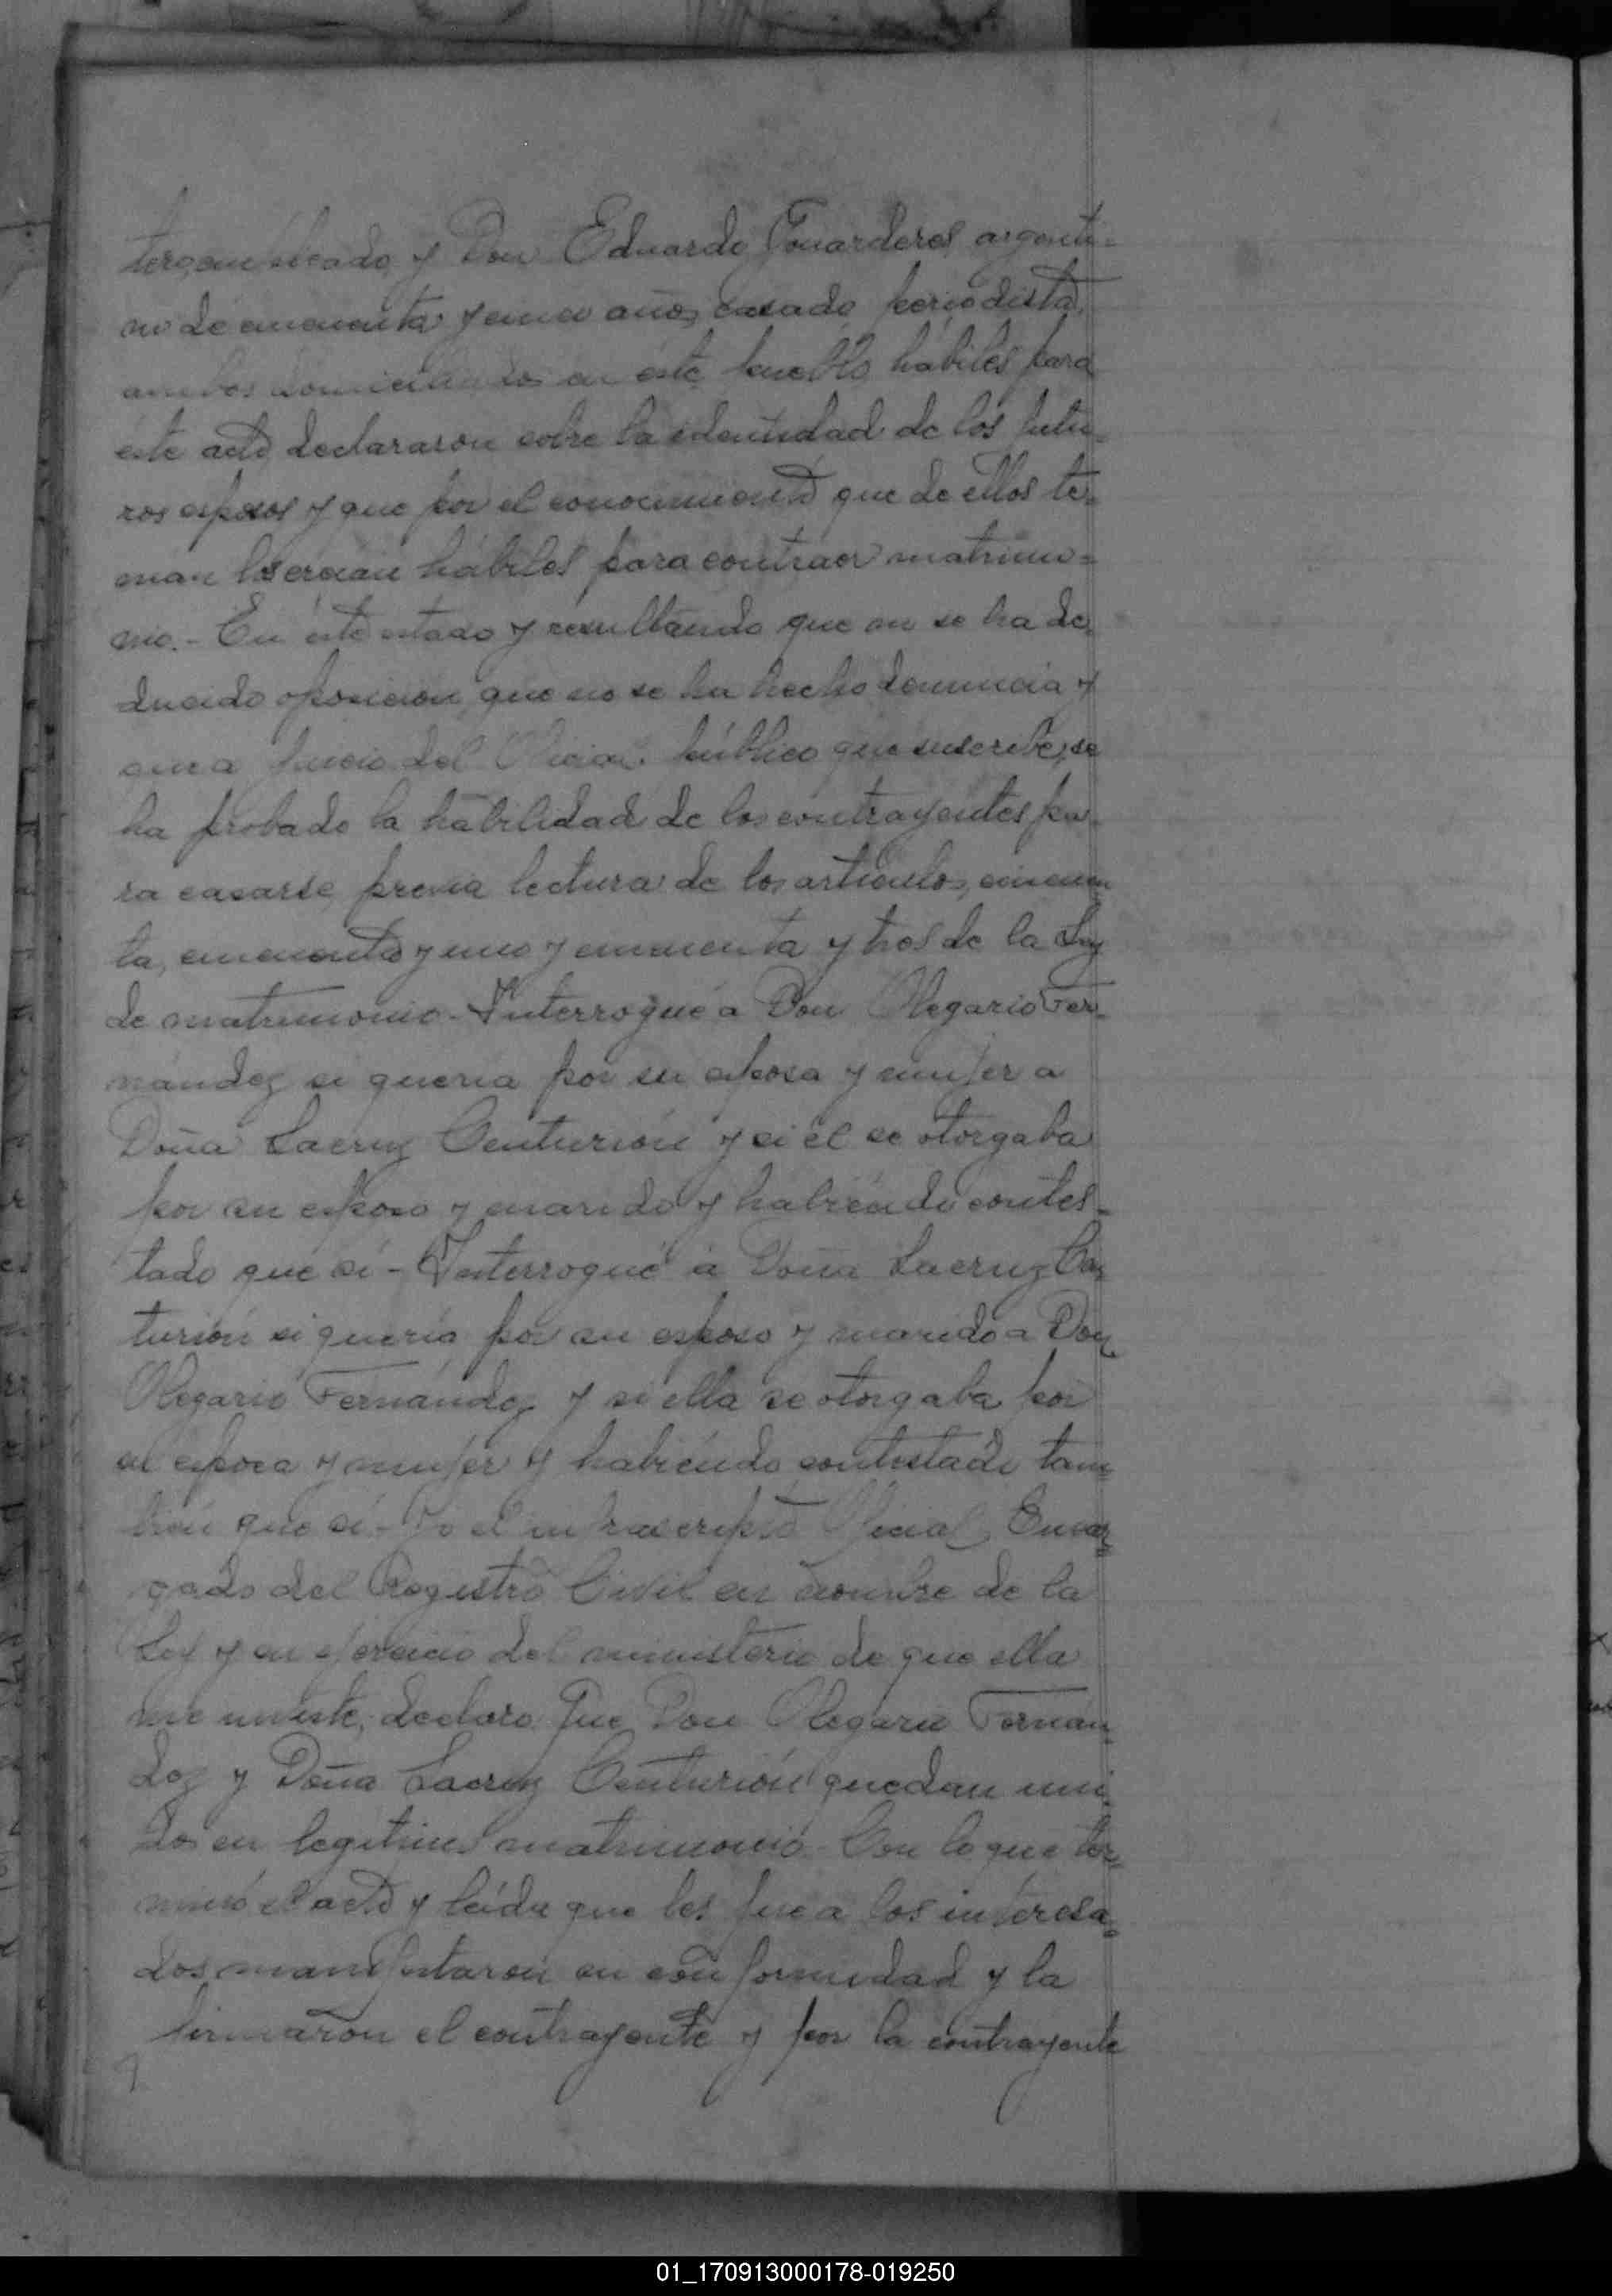 y Don Eduardo Gonarderes, argenti=
no de cincuenta y cinco años, casado, periodista,
ambos domiciliados en este pueblo, hábiles para
este acto, declararon sobre la identidad de los futu=
ros esposos y que por el conocimiento que de ellos te=
nian los creian hábiles para contraer matrimo=
nio.- En éste estado y resultando que no se ha de=
ducido oposicion, que no se ha hecho denuncia y
que a juicio del Oficial público que suscribe, se
ha probado la habilidad de los contrayentes pa=
ra casarse, previa lectura de los articulos, cincuen=
ta, cincuenta y uno y cincuenta y tres de la Ley
de matrimonio.- Interrogué a Don Olegario Fer=
nández si queria por su esposa y mujer a
Doña Lacruz Centurión y si él se otorgaba
por su esposo y marido y habiendo contes=
tado que sí - Interrogué á Doña Lacruz Cen=
turión si quería por su esposo y marido a Don
Olegario Fernández y si ella se otorgaba por
su esposa y mujer y habiendo contestado tam=
bién que sí - Yo el infrascripto Oficial Encar=
gado del Registro Civil en nombre de la
Ley y en ejercicio del ministerio de que ella
me inviste, declaro: Que Don Olegario Fernán=
dez y Doña Lacruz Centurión quedan uni=
dos en legitimo matrimonio - Con lo que ter=
minó el acto y leída que les fue a los interesa=
dos, manifestaron su conformidad y la
firmaron el contrayente y por la contrayente
01_170913000178-019250